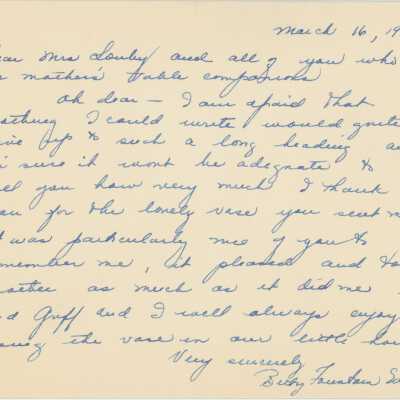 March 16, 19
ear Mrs Lonby and all of you who
r mother's table companions
Oh dear — I am afraid that
othing I could write would quite
ive up to such a long heading an
m sure it wont be adequate to
ell you how very much I thank
ou for the lovely vase you sent m
t was particularly nice of you to
emember me, it pleased and to
other as much as it did me
d Griff and I will always enjoy
sing the vase in our little ho
Very sincerely
Betsy Fountain